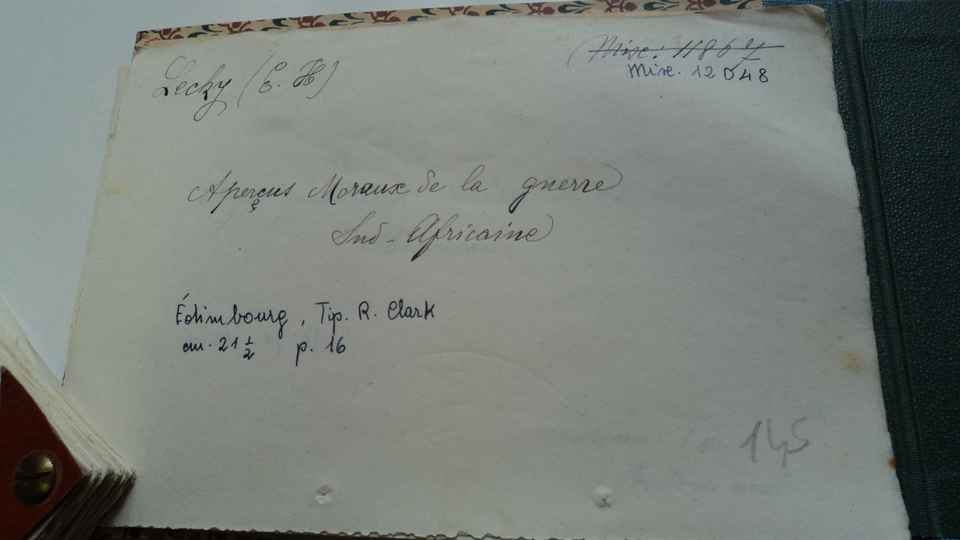 Lecky (E. H)
Misc. 11867
Misc. 12048
Aperçus Moraux de la guerre
Sud-Africaine
Édimbourg, Tip. R. Clark
cm. 21 1/2 p. 16
145